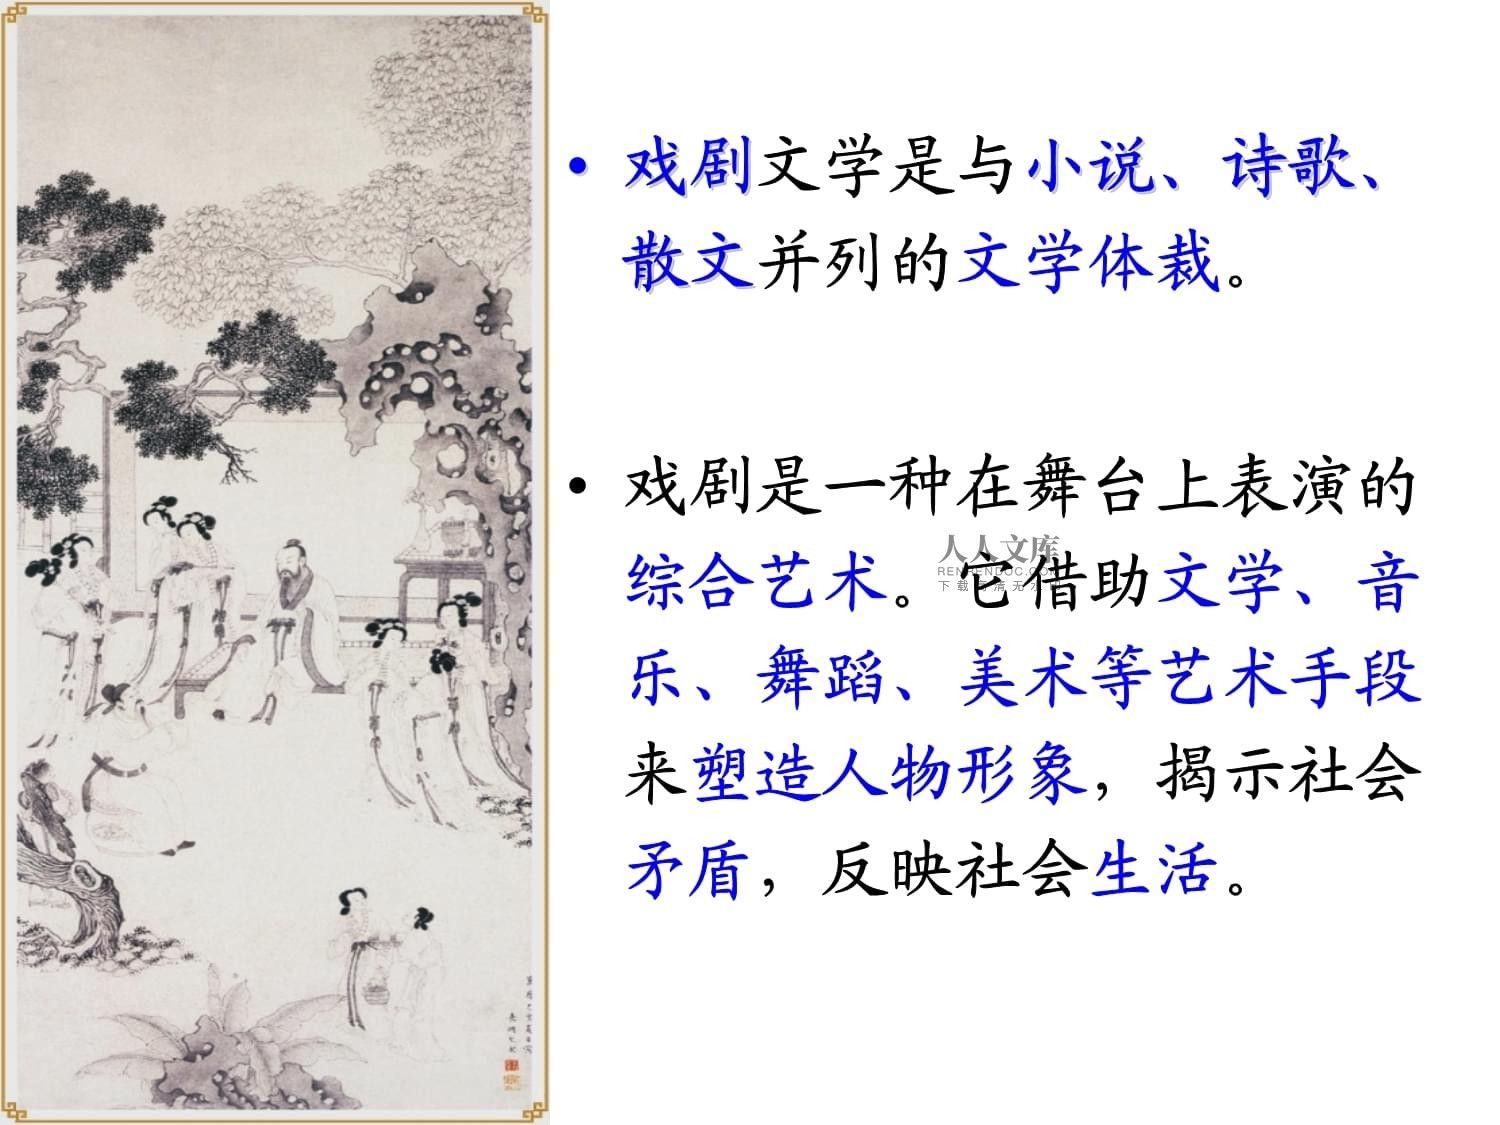 • 戏剧文学是与小说、诗歌、
散文并列的文学体裁。
• 戏剧是一种在舞台上表演的
人人文库
RENRENDOC.COM
下载高清无水印
综合艺术。它借助文学、音
乐、舞蹈、美术等艺术手段
来塑造人物形象，揭示社会
矛盾，反映社会生活。